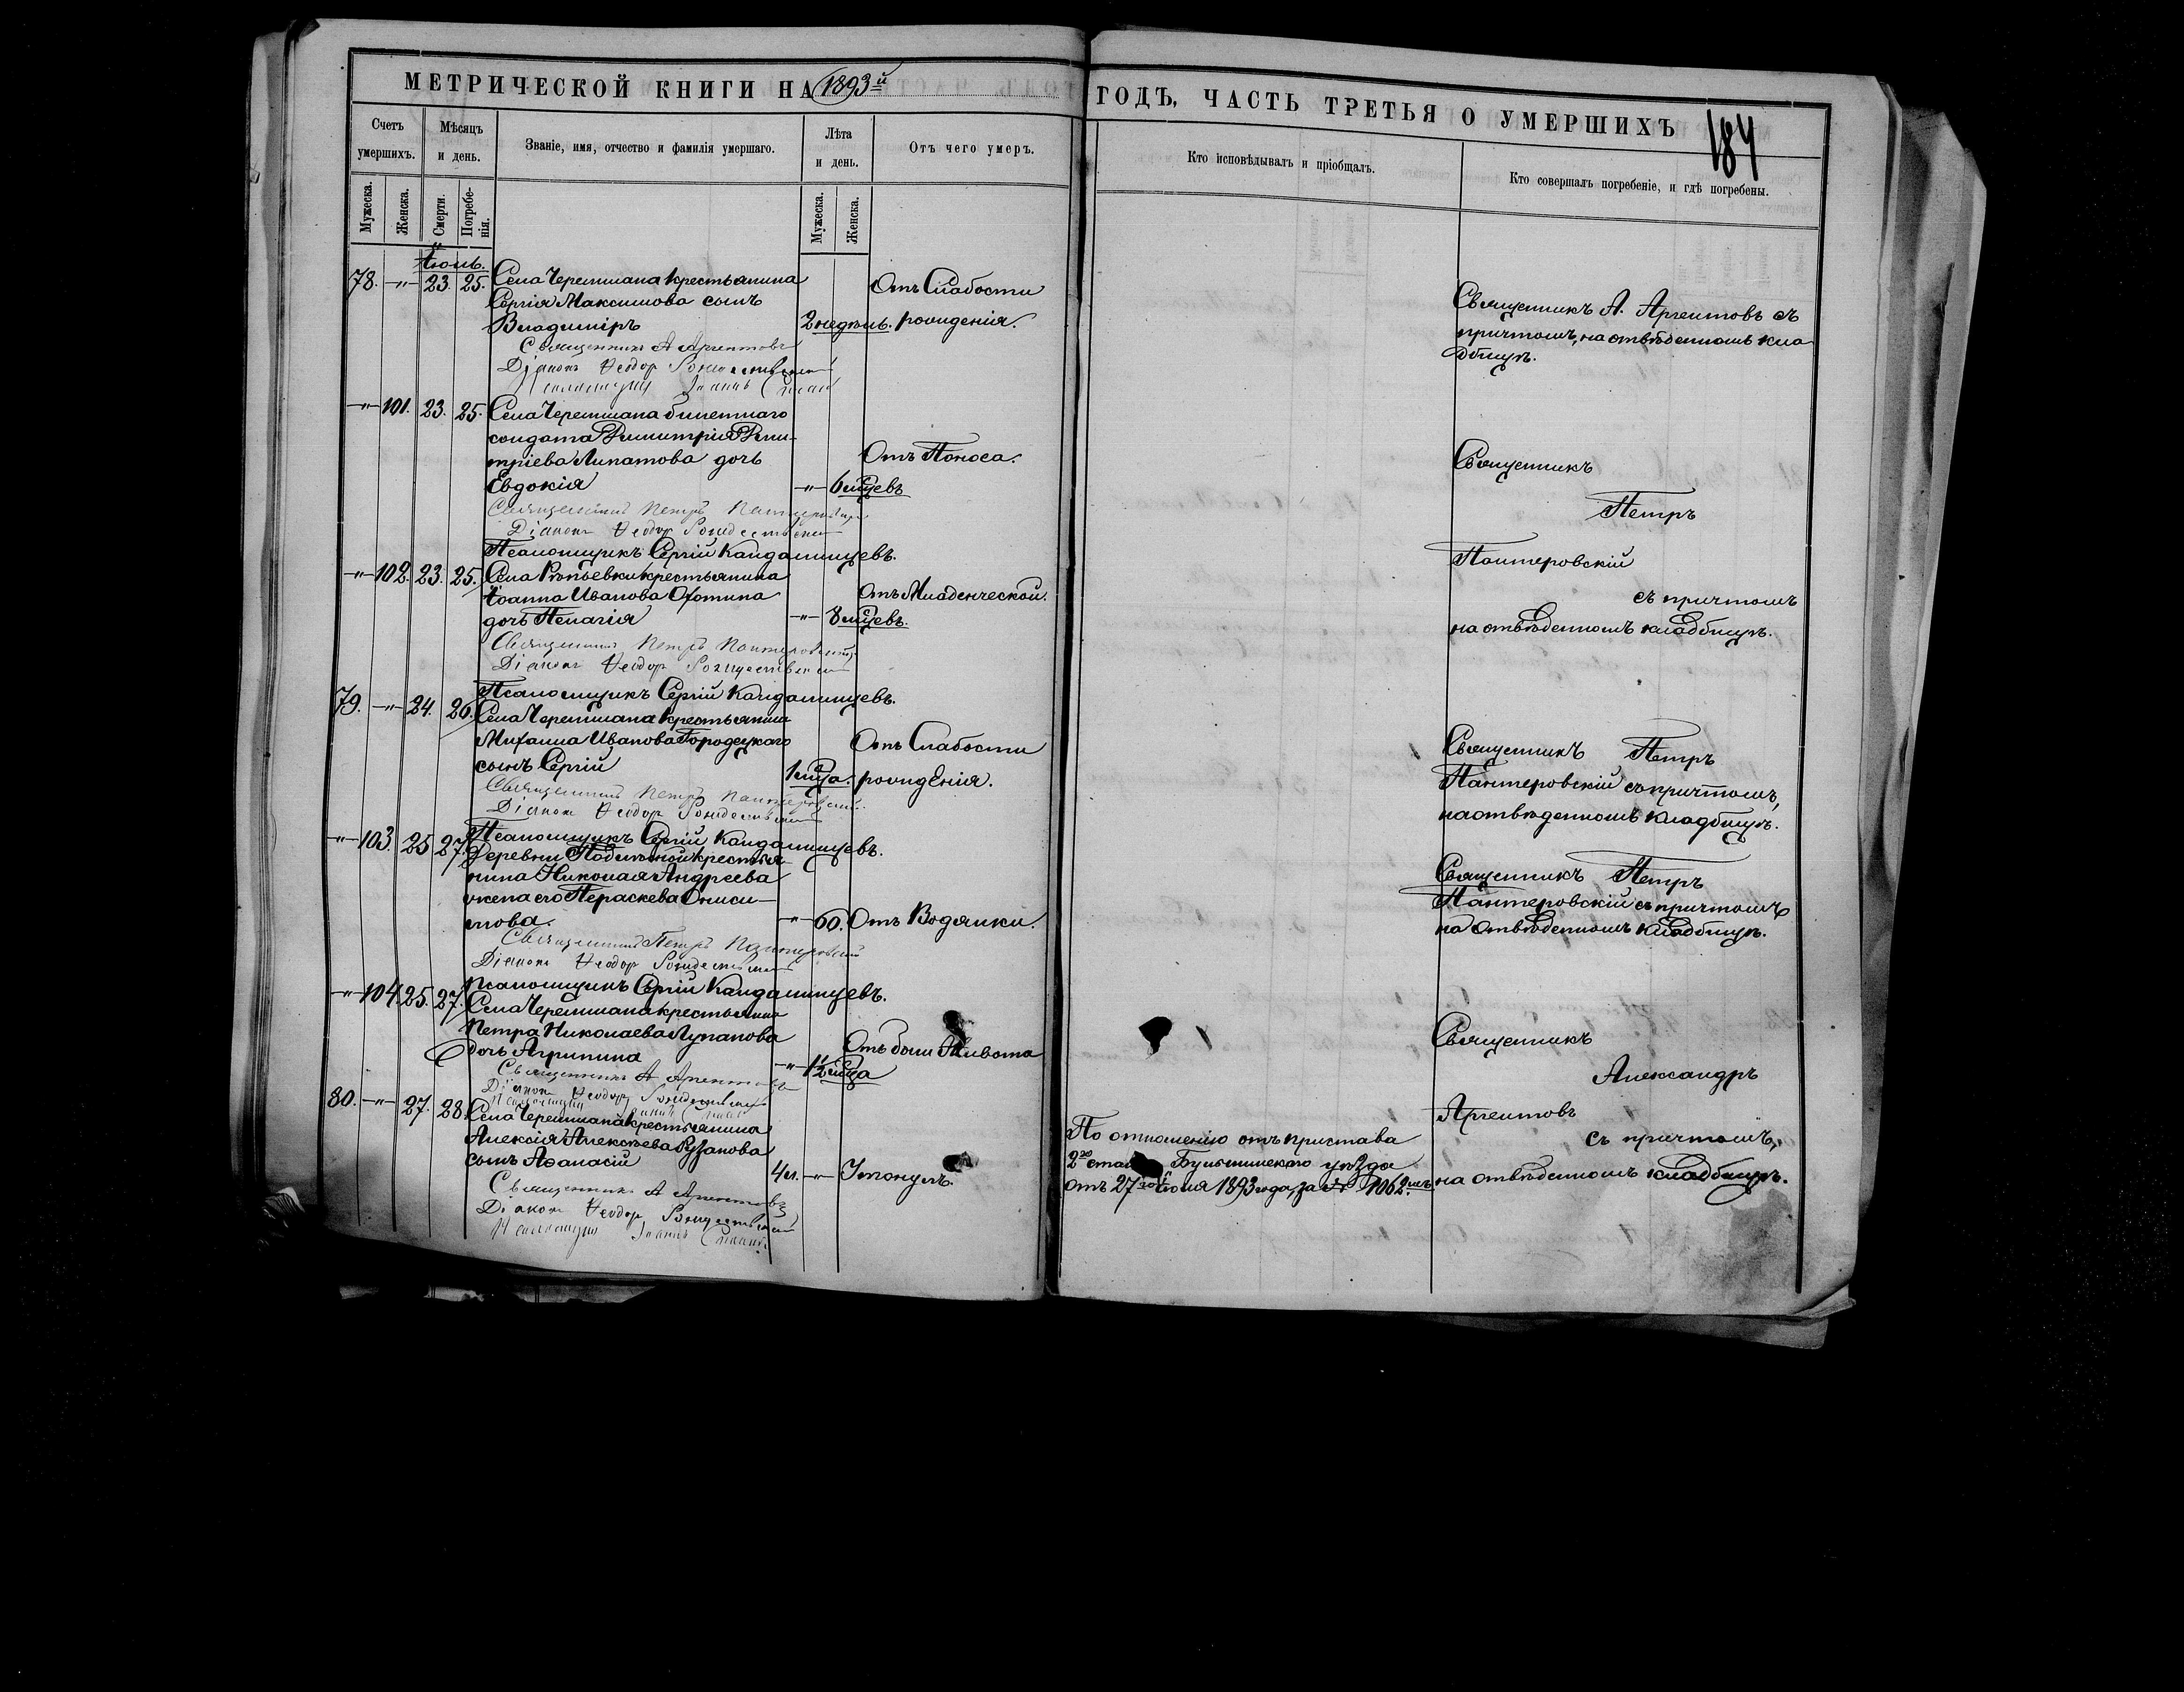 МЕТРИЧЕСКОЙ КНИГИ НА 1893й ГОДЪ, ЧАСТЬ ТРЕТЬЯ О УМЕРШИХЪ
184
Счетъ умершихъ.
Мѣсяцъ и день.
Званіе, имя, отчество и фамилія умершаго.
Лѣта и день.
Отъ чего умеръ.
Кто исповѣдывалъ и пріобщалъ.
Кто совершалъ погребеніе, и гдѣ погребены.
Мужеска.
Женска.
Смерти.
Погребе-
нія.
Мужеска.
Женска.
78. —"— 23. 25. Села Черемшана крестьянина
Сергія Максимова сынъ
Владиміръ
2 недѣль.
Отъ Слабости
рожденія.
Священникъ А. Аргентовъ съ
причтомъ, на отвѣденномъ кла
дбищѣ.
Священникъ А Аргентовъ
Діаконъ Ѳеодор Рождественскій
Псаломщикъ Іоаннъ
—"— 101. 23. 25. Села Черемшана билетнаго
солдата Димитрія Дими-
тріева Липатова дочь
Евдокія
—"— 6 мцевъ
Отъ Поноса.
Священникъ
Петръ
Пантеровскій
съ причтомъ
на отвѣденномъ кладбищѣ.
Священникъ Петръ Пантеровскій
Діаконъ Ѳеодор Рождественскій
Псаломщикъ Сергій Кандалинцевъ.
—"— 102. 23. 25. Села крестьянина
Іоанна Иванова Фомина
дочь Пелагія
—"— 8 мцевъ.
Отъ Младенческой.
Священникъ Петръ Пантеровскій
Діаконъ Ѳеодор Рождественскій
Псаломщикъ Сергій Кандалинцевъ.
79. —"— 24. 26. Села Черемшана крестьянина
Михаила Иванова Городецкаго
сынъ Сергій
1 мца.
Отъ Слабости
рожденія.
Священникъ Петръ
Пантеровскій съ причтомъ,
на отвѣденномъ кладбищѣ.
Священникъ Петръ Пантеровскій
Діаконъ Ѳеодор Рождественскій
Псаломщикъ Сергій Кандалинцевъ.
—"— 103. 25 27. Деревни крестья-
нина Николая Андреева
жена его Параскева Ониси-
мова.
—"— 60. Отъ Водянки.
Священникъ Петръ
Пантеровскій съ причтомъ
на отвѣденномъ кладбищѣ.
Священникъ Петръ Пантеровскій
Діаконъ Ѳеодор Рождественскій
Псаломщикъ Сергій Кандалинцевъ.
—"— 104. 25. 27. Села Черемшана крестьянина
Петра Николаева Лупанова
дочь Агрипина
—"— 1½ мца
Отъ боли Живота
Священникъ
Александръ
Аргентовъ
съ причтомъ,
на отвѣденномъ кладбищѣ.
Священникъ А Аргентовъ
Діаконъ Ѳеодор Рождественскій
Псаломщикъ Іоаннъ
80. —"— 27. 28. Села Черемшана крестьянина
Алексія Алексѣева Рузанова
сынъ Аѳанасій
4 л. —"— Утонулъ.
По отношенію отъ пристава
2го стана Бугульминскаго уѣзда
отъ 27го Іюля 1893 года, за № 1062мъ
Священникъ А Аргентовъ
Діаконъ Ѳеодор Рождественскій
Псаломщикъ Іоаннъ